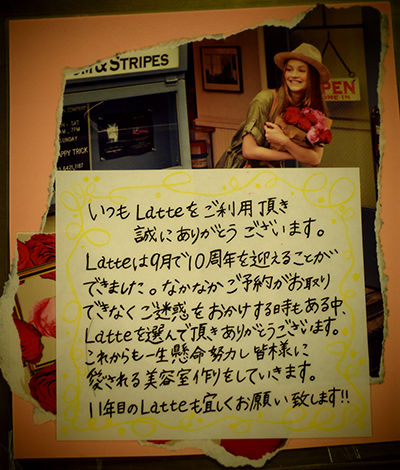 M & STRIPES
PEN
SUNDAY
HAPPY TRICK
いつもLatteをご利用頂き
誠にありがとうございます。
Latteは9月で10周年を迎えることが
できました。なかなかご予約がお取り
できなくご迷惑をおかけする時もある中、
Latteを選んで頂きありがとうございます。
これからも一生懸命努力し皆様に
愛される美容室作りをしていきます。
11年目のLatteも宜しくお願い致します!!